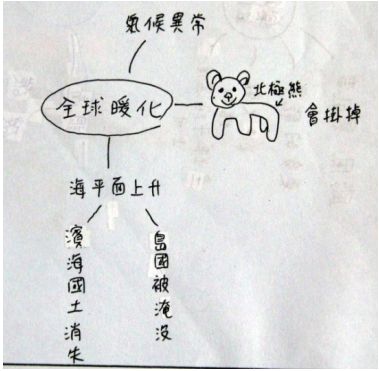 氣候異常
全球暖化
北極熊
會掛掉
海平面上升
濱海國土消失
島國被淹沒